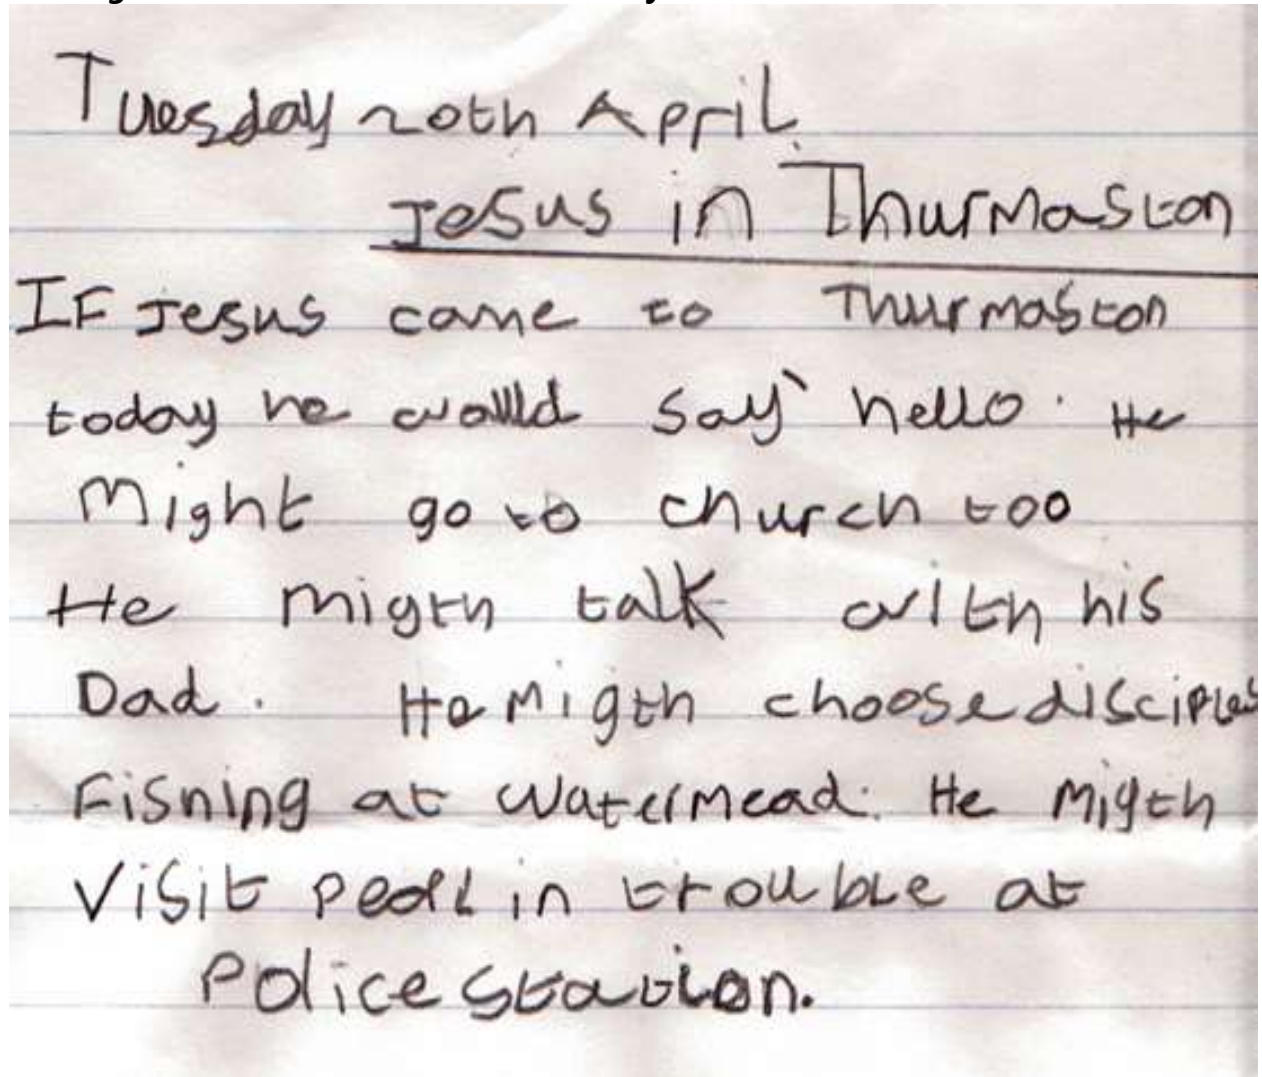 Tuesday 20th April.
Jesus in Thurmaston
IF Jesus came to Thurmaston
today he would say hello. He
Might go to church too
He migth talk with his
Dad. He Migth choose disciples
Fishing at Watermead. He Migth
Visit in trouble at
Police Station.